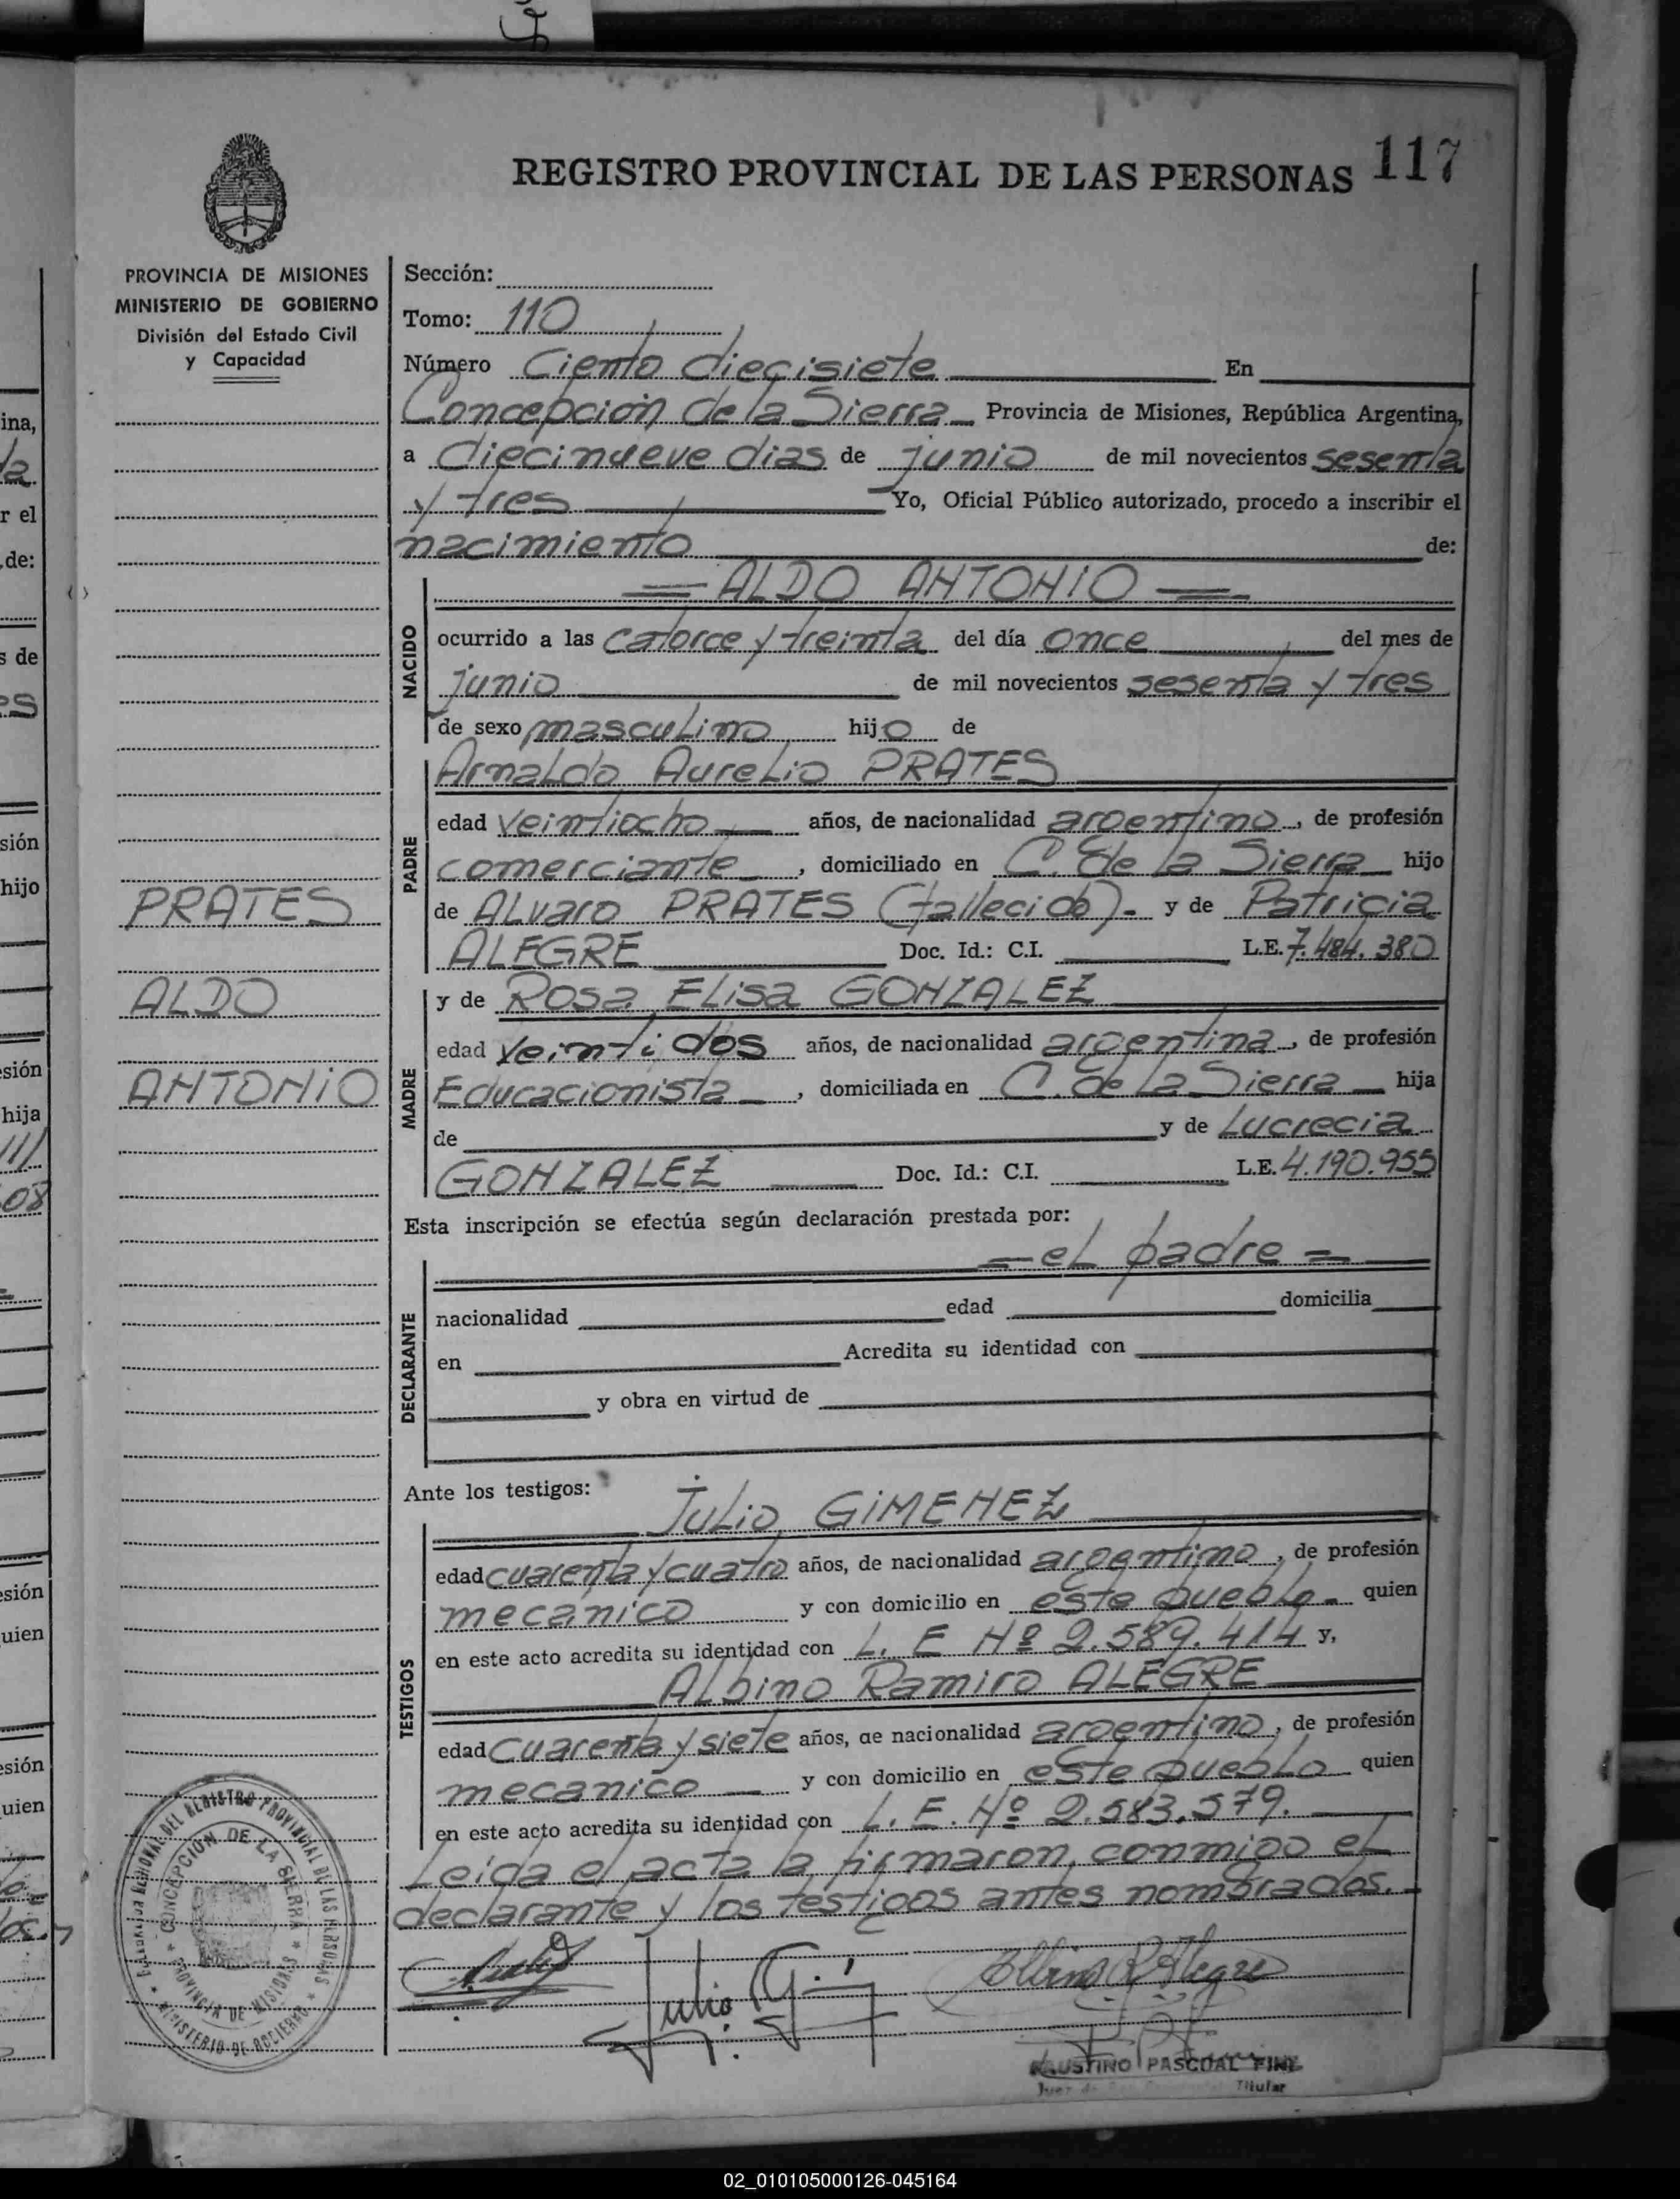 REGISTRO PROVINCIAL DE LAS PERSONAS 117
PROVINCIA DE MISIONES
MINISTERIO DE GOBIERNO
División del Estado Civil
y Capacidad
Sección:
Tomo: 110
Número Ciento diecisiete En
Concepción de la Sierra Provincia de Misiones, República Argentina,
a diecinueve dias de junio de mil novecientos sesenta
y tres Yo, Oficial Público autorizado, procedo a inscribir el
nacimiento de:
= ALDO ANTONIO =
NACIDO
ocurrido a las catorce y treinta del día once del mes de
junio de mil novecientos sesenta y tres
de sexo masculino hijo de
Arnaldo Aurelio PRATES
PADRE
edad veintiocho años, de nacionalidad argentino, de profesión
comerciante, domiciliado en C. de la Sierra hijo
de Alvaro PRATES (fallecido). y de Patricia
ALEGRE Doc. Id.: C.I. L.E. 7.484.380
PRATES
ALDO
ANTONIO
MADRE
y de Rosa Elisa GONZALEZ
edad veintidos años, de nacionalidad argentina, de profesión
Educacionista, domiciliada en C. de la Sierra hija
de y de Lucrecia
GONZALEZ Doc. Id.: C.I. L.E. 4.190.955
Esta inscripción se efectúa según declaración prestada por:
= el padre =
DECLARANTE
nacionalidad edad domicilia
en Acredita su identidad con
y obra en virtud de
Ante los testigos:
Julio GIMENEZ
TESTIGOS
edad cuarenta y cuatro años, de nacionalidad argentino, de profesión
mecánico y con domicilio en este pueblo. quien
en este acto acredita su identidad con L. E Nº 2.589.414 y,
Albino Ramiro ALEGRE
edad cuarenta y siete años, de nacionalidad argentino, de profesión
mecanico y con domicilio en este pueblo quien
en este acto acredita su identidad con L. E. Nº 2.583.579.
Leida el acta la firmaron, conmigo el
declarante y los testigos antes nombrados.
Julio G.
Albino R Alegre
FAUSTINO PASCUAL FINI
Titular
CONCEPCION DE LA SIERRA
PROVINCIA DE MISIONES
DEL REGISTRO PROVINCIAL DE LAS PERSONAS
MINISTERIO DE GOBIERNO
02_010105000126-045164